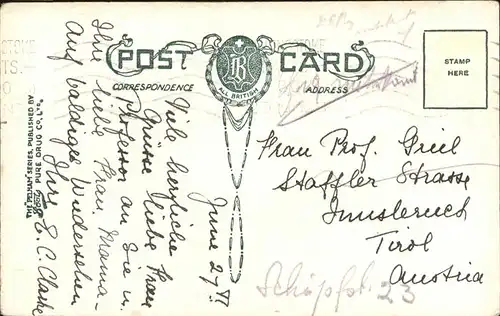 POST CARD
CORRESPONDENCE
ADDRESS
B
ALL BRITISH
STAMP
HERE
THE "PELHAM" SERIES. PUBLISHED BY
BOOTS PURE DRUG CO., LTD.
June 27th
Viele herzliche
Grüsse liebe Frau
Professor an Sie u.
Ihre liebe Frau Mama -
auf baldiges Wiedersehen
Ihre E. C. Clarke
Frau Prof.
Staffler Strasse
Innsbruck
Tirol
Austria
Schöpfstr. 23